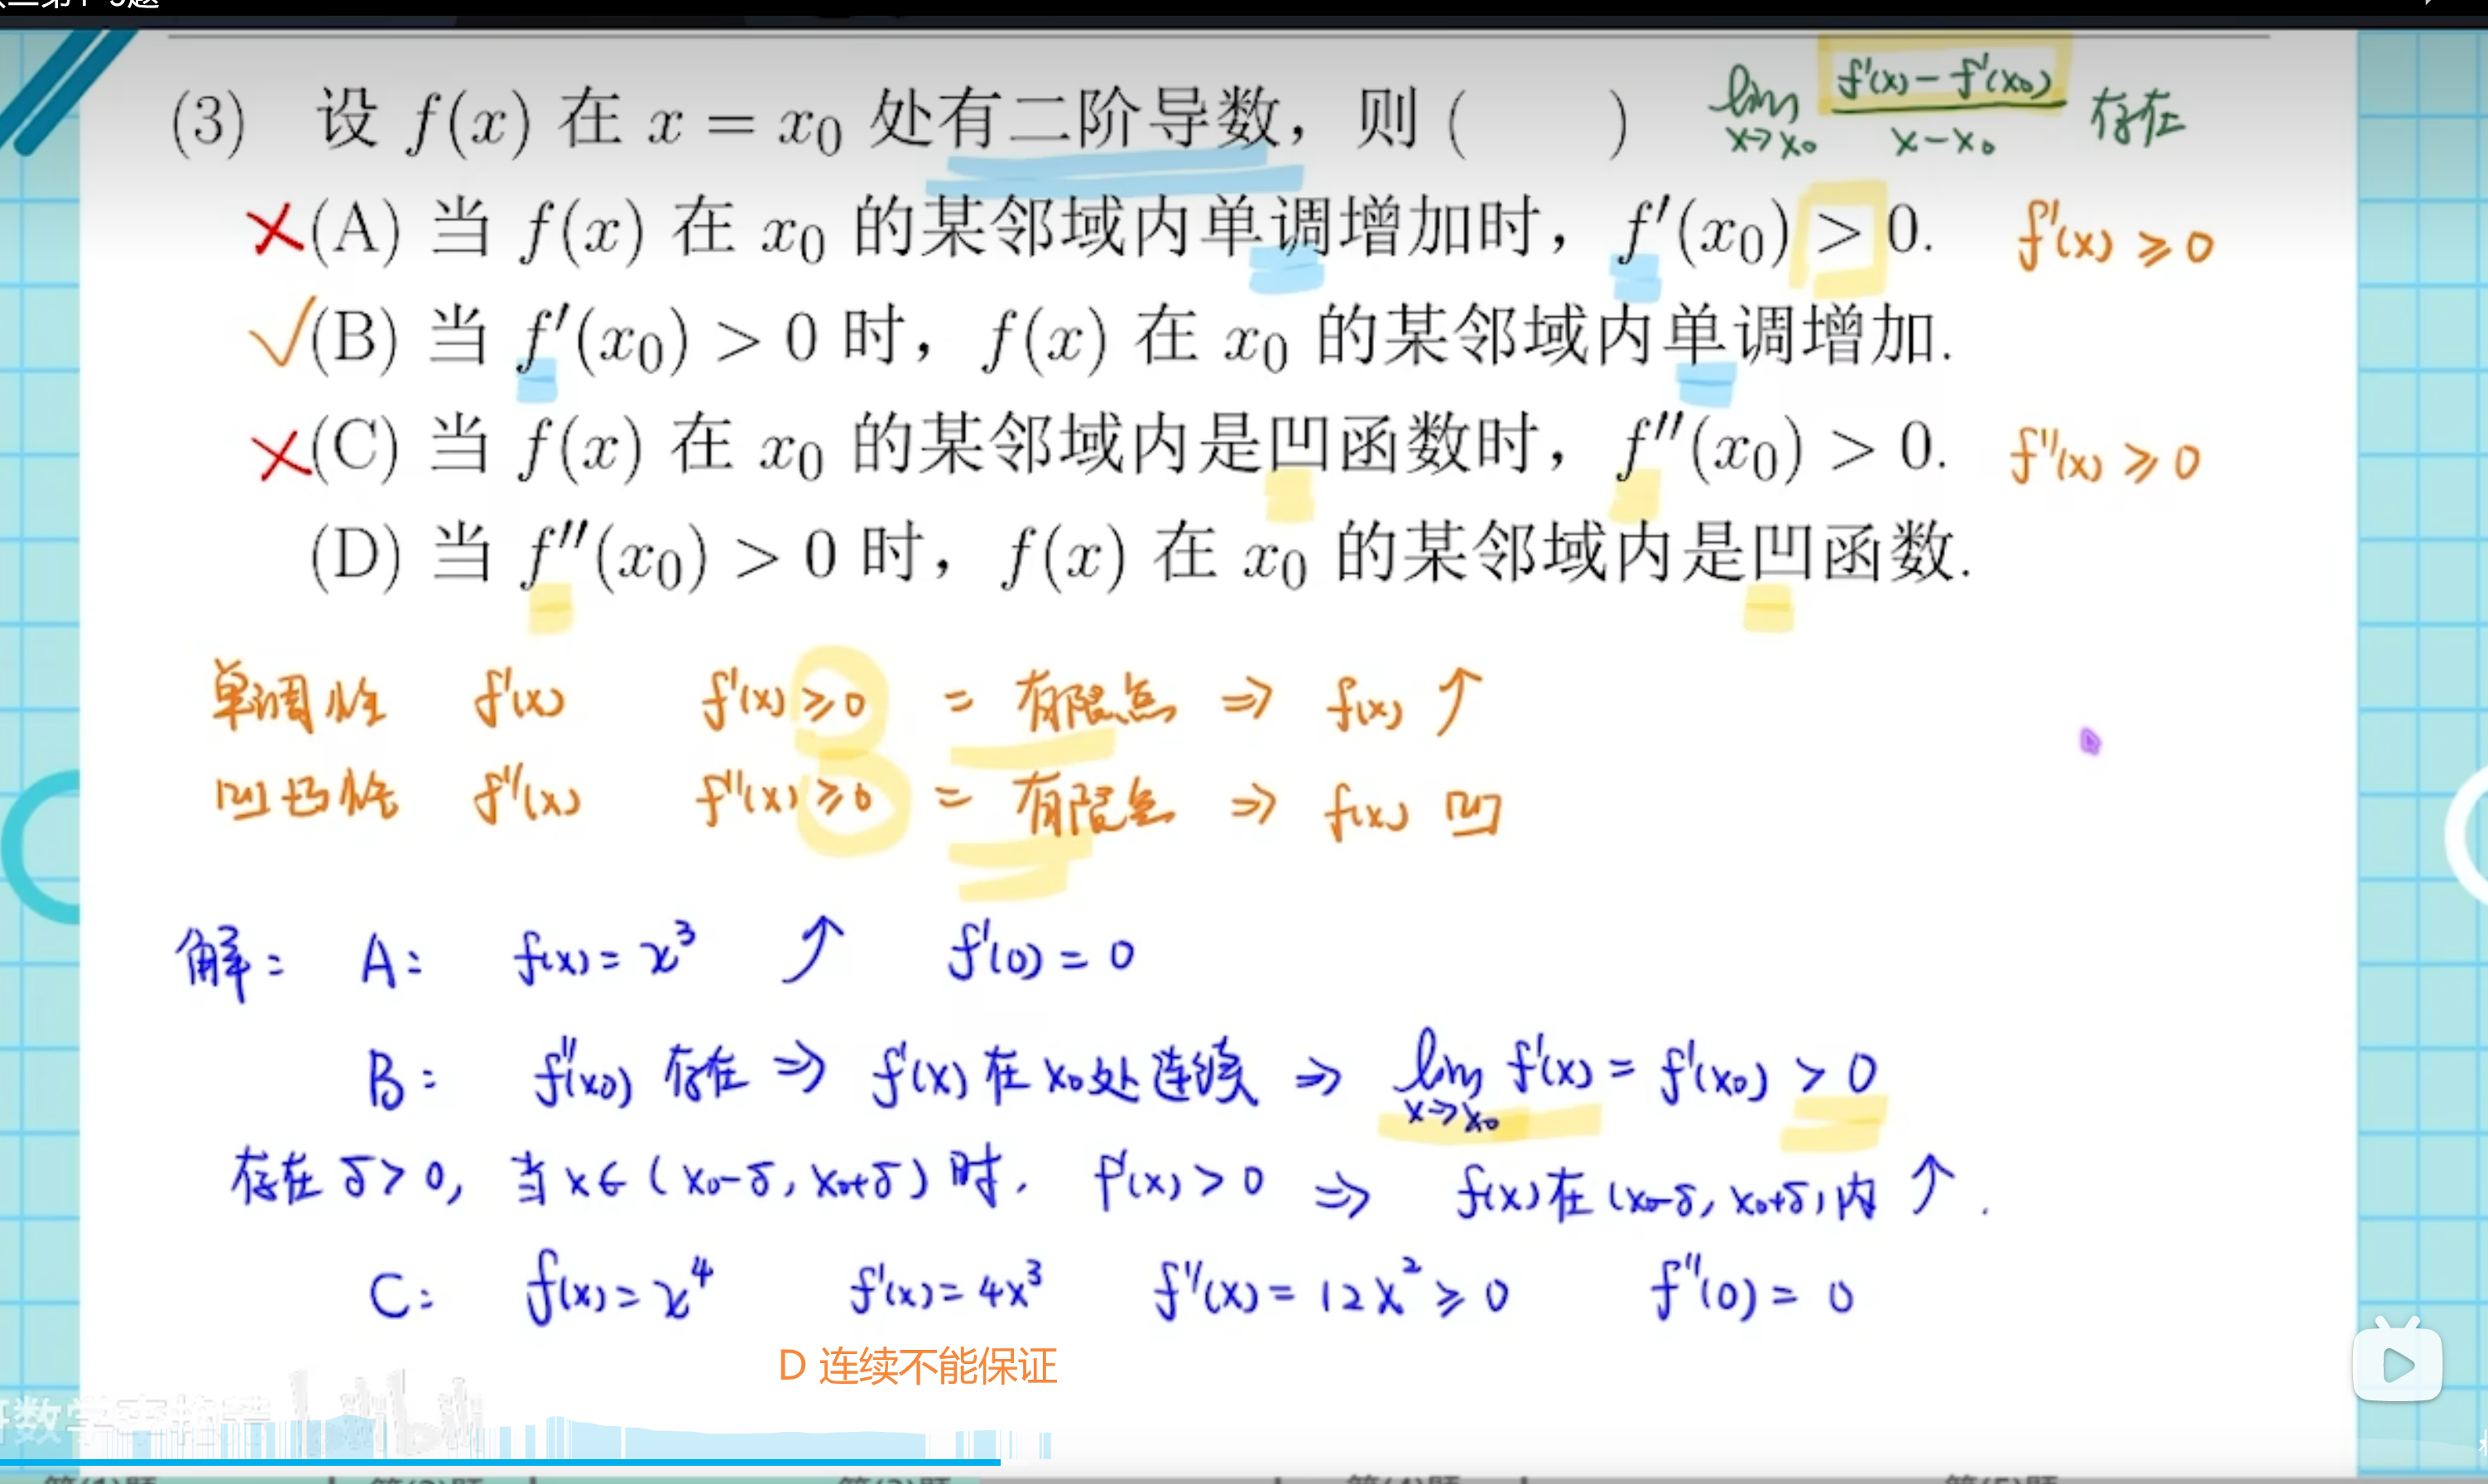 (3) 设 f(x) 在 x = x₀ 处有二阶导数，则 ( )
lim x→x₀ (f'(x) − f'(x₀))/(x − x₀) 存在
×(A) 当 f(x) 在 x₀ 的某邻域内单调增加时，f'(x₀) > 0. f'(x) ≥ 0
✓(B) 当 f'(x₀) > 0 时，f(x) 在 x₀ 的某邻域内单调增加.
×(C) 当 f(x) 在 x₀ 的某邻域内是凹函数时，f''(x₀) > 0. f''(x) ≥ 0
(D) 当 f''(x₀) > 0 时，f(x) 在 x₀ 的某邻域内是凹函数.
单调性 f'(x) f'(x) ≥ 0 = 有限点 ⇒ f(x) ↑
凹凸性 f''(x) f''(x) ≥ 0 = 有限点 ⇒ f(x) 凹
解: A: f(x) = x³ ↑ f'(0) = 0
B: f''(x₀) 存在 ⇒ f'(x) 在 x₀ 处连续 ⇒ lim x→x₀ f'(x) = f'(x₀) > 0
存在 δ > 0, 当 x ∈ (x₀−δ, x₀+δ) 时, f'(x) > 0 ⇒ f(x) 在 (x₀−δ, x₀+δ) 内 ↑.
C: f(x) = x⁴ f'(x) = 4x³ f''(x) = 12x² ≥ 0 f''(0) = 0
D 连续不能保证